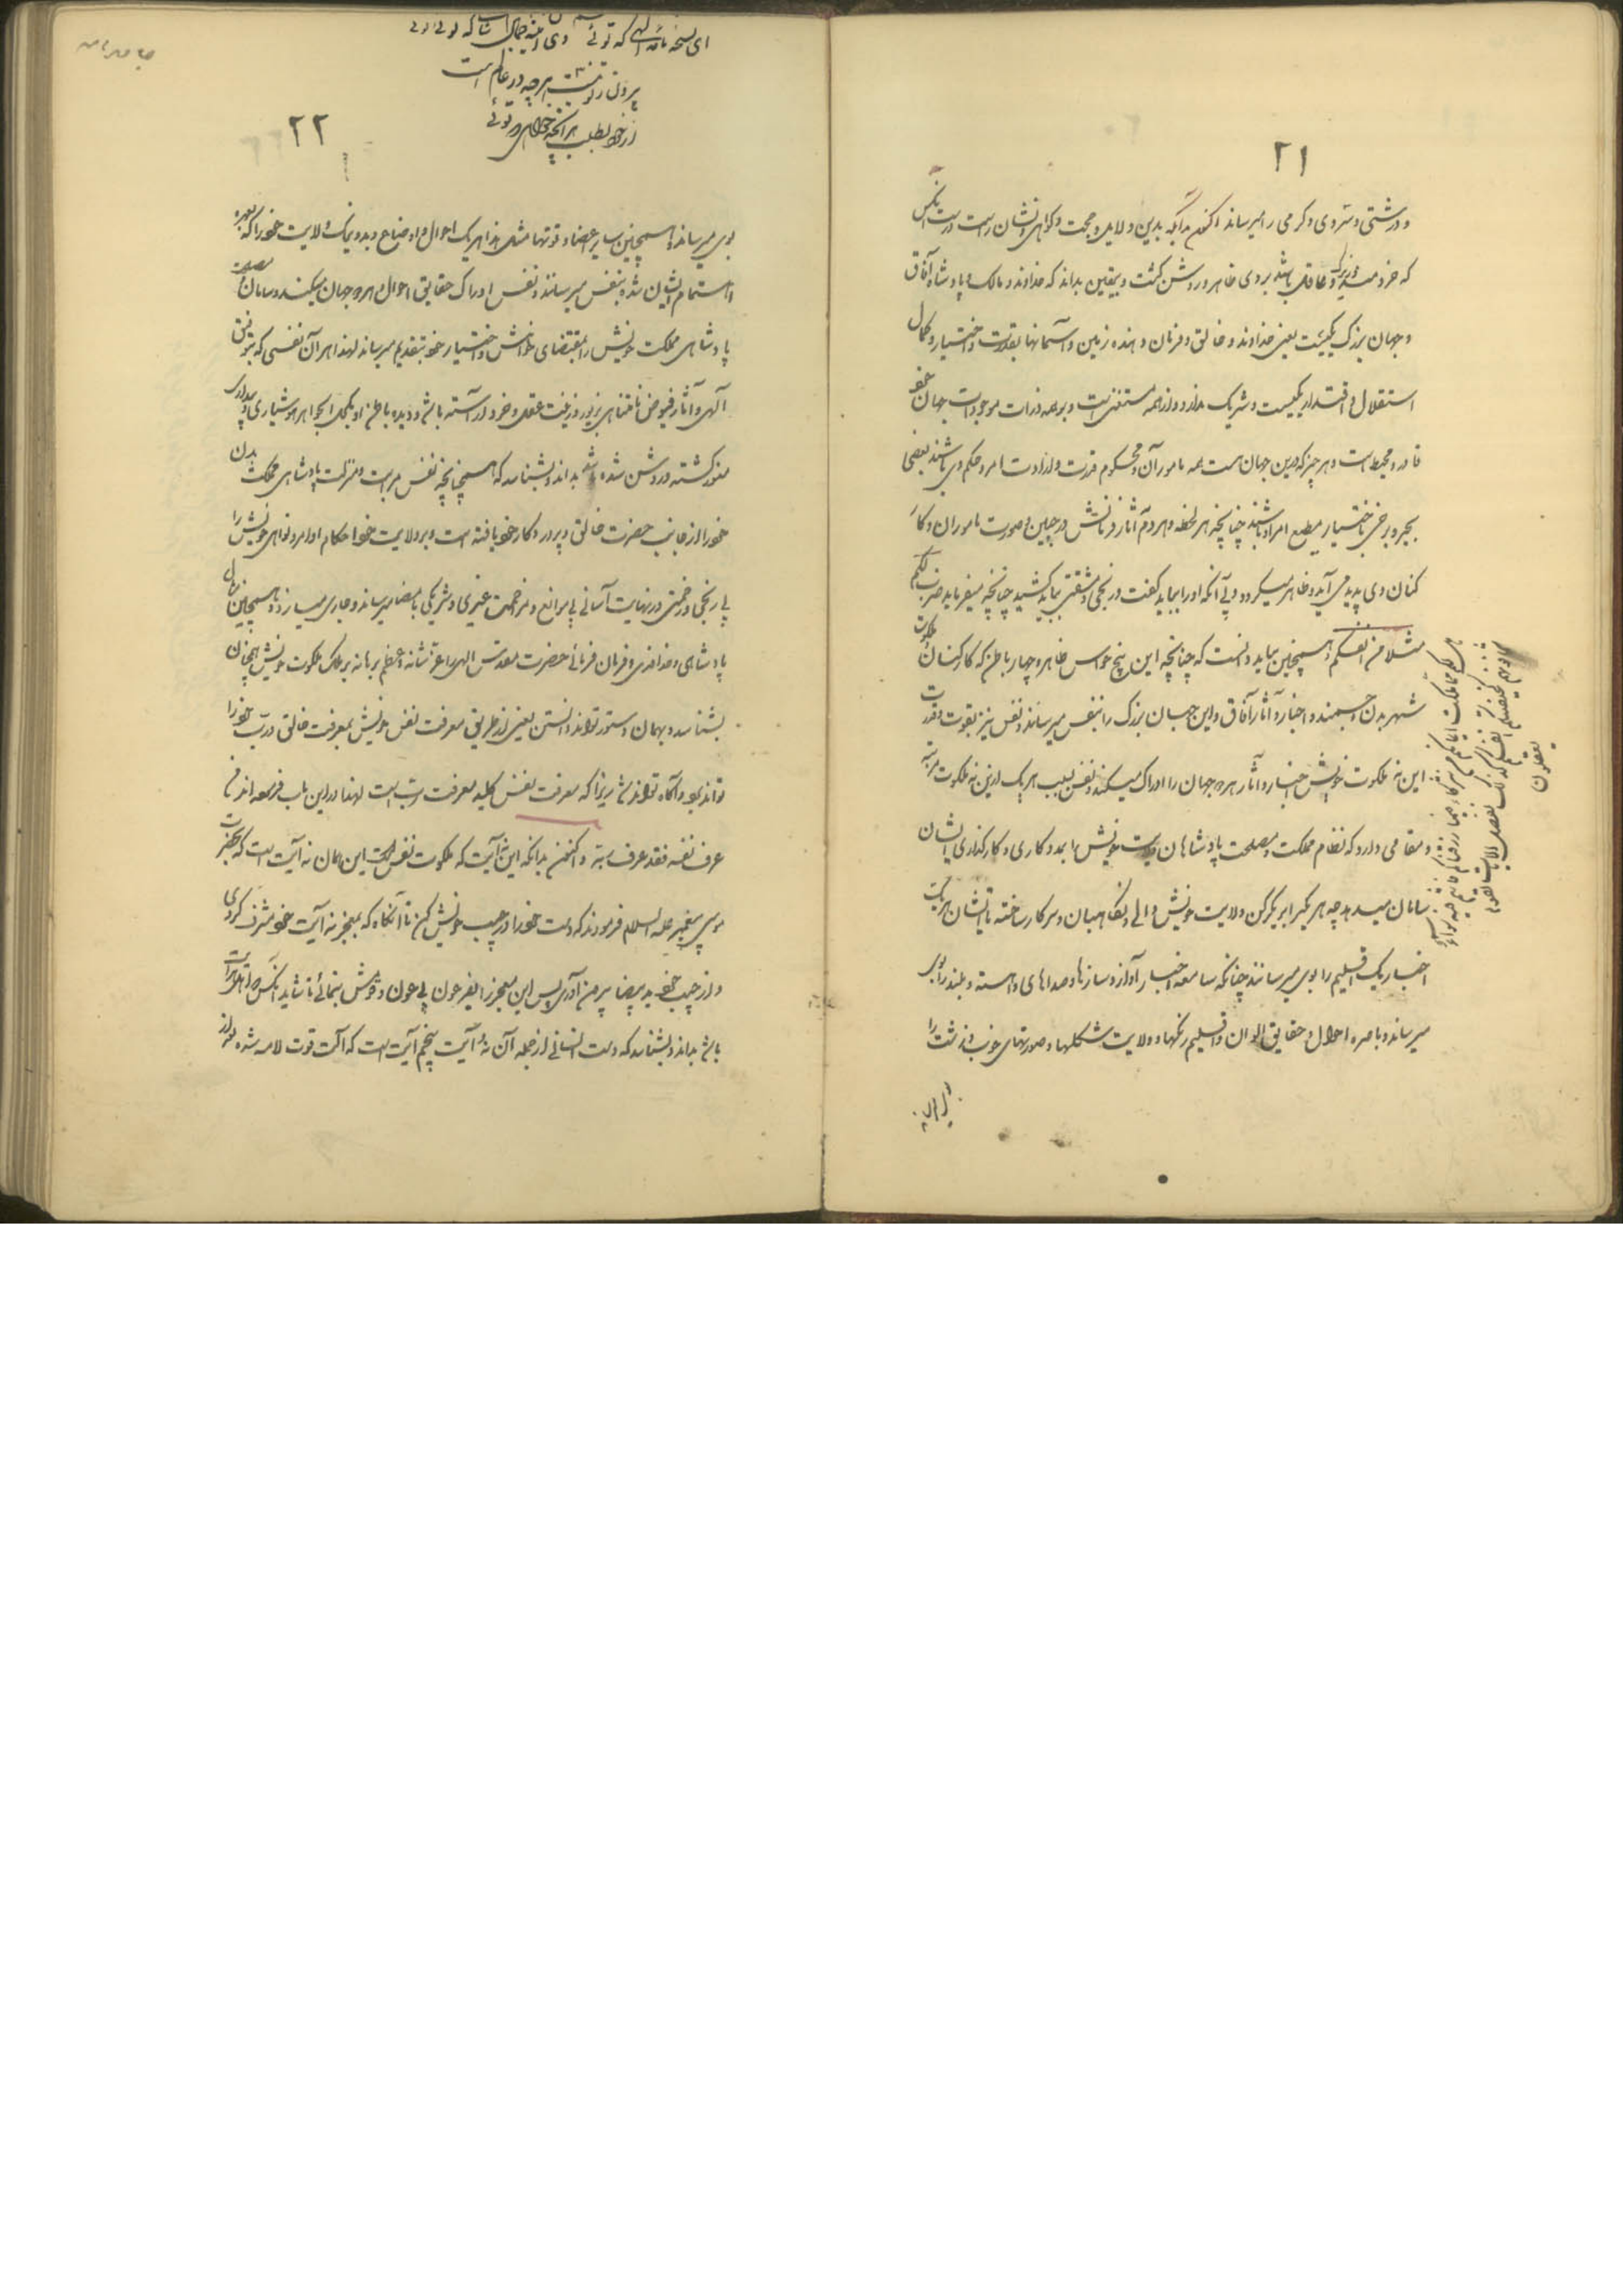 ۲۱
و درشتی و سردی و گرمی را میرساند اکنون بدانکه بدین دلایل و حجت و گواهی و نشان راست درست آنکس
که خردمند و زیرک و عاقل باشد بروی ظاهر و روشن گشت و بیقین بداند که خداوند و مالک و پادشاه آفاق
و جهان بزرگ یکیست یعنی خداوند و خالق و فرمان دهنده زمین و آسمانها بقدرت و اختیار و کمال
استقلال و اقتدار یکیست و شریک ندارد و از همه مستغنی است و بر همه ذرات موجودات جهان خود
قادر و محیط است و هر چیز که درین جهان هست همه مامور آن و محکوم قدرت و ارادت امر و حکم وی باشند بعضی
بجبر و برخی باختیار مطیع امر او باشند چنانچه هر لحظه و هر دم آثار فرمانش در چنین صورت ماموران و کار
کنان وی پدید می آید و ظاهر میگردد بی آنکه او را بباید گفت و رنجی و مشقتی بباید کشید چنانچه میفرماید ضرب لکم
مثلا من انفسکم و همچنین بباید دانست که چنانچه این پنج حواس ظاهر و چهار باطن که کارکنان ملکوت
شهر بدن و جسمند و اخبار و آثار آفاق و این جهان بزرگ را بنفس میرسانند و نفس نیز بقوت و قدرت
این نه ملکوت خویش اخبار و آثار هر دو جهان را ادراک میکند و نفس بسبب هر یک ازین نه ملکوت مرتبه
و مقامی دارد که نظام مملکت و مصلحت پادشاهان ویست خویش را بمددکاری و کارگذاری ایشان
سامان میدهد چه هر یکی را بر یکرکن ولایت خویش والی و نگاهبان و سرکار ساخته تا ایشان هر یک
اخبار یک اقلیم را بوی میرسانند چنانکه سامعه اخبار آواز و سازها و صداهای آهسته و بلند را بوی
میرساند و باصره احوال و حقایق الوان و اقلیم رنگها و ولایت شکلها و صورتهای خوب و زشت را
هل لکم مما ملکت ایمانکم من شرکاء فیما رزقناکم فانتم فیه سواء
تخافونهم کخیفتکم انفسکم کذلک نفصل الآیات لقوم
یعقلون
ای نسخه نامه الهی که توئی وی آینه جمال شاهی که توئی
بیرون ز تو نیست هرچه در عالم هست
از خود بطلب هر آنچه خواهی که توئی
۲۲
بوی میرساند و همچنین سایر اعضا و قوتها مثل هذا هر یک احوال و اوضاع و بد و نیک ولایت خود را که بعهده
و اهتمام ایشان شده بنفس میرسانند و نفس ادراک حقایق احوال هر دو جهان میکند و سامان مصلحت
پادشاهی مملکت خویش را بمقتضای خواهش و اختیار خود بتقدیم میرساند لهذا هر آن نفسی که بتوفیق
الهی و آثار فیوض نامتناهی بزیور و زینت عقل و خرد آراسته باشد و دیده باطن او بکحل الجواهر هوشیاری و بیداری
منور گشته و روشن شده باشد بداند و بشناسد که همچنانچه نفس مرتبت و منزلت پادشاهی مملکت بدن
خود را از جانب حضرت خالق و پروردگار خود یافته است و بر ولایت خود احکام اوامر و نواهی خویش را
بی رنجی و زحمتی در نهایت آسانی بی مانع و مزاحمت غیری و شریکی بامضا میرساند و جاری میسازد همچنین مثال
پادشاهی و خداوندی و فرمان فرمائی حضرت مقدس الهی را عز شانه و عظم برهانه بر ملک ملکوت خویش همچنان
بشناسد و بهمان دستور تواند دانستن یعنی از طریق معرفت نفس خویش بمعرفت خالق و رب خود را
تواند بود و آگاه تواند شد زیرا که معرفت نفس کلید معرفت رب است لهذا در این باب فرموده اند من
عرف نفسه فقد عرف ربه و اکنون بدانکه این نه آیت که ملکوت نفس است این همان نه آیت است که بحضرت
موسی پیغمبر علیه السلام فرمودند که دست خود را در جیب خویش کن تا آنگاه که بمعجز نه آیت خود مشرف گردی
و از جیب خود ید بیضا بیرون آوری پس این معجز را بفرعون بی عون و قومش بنمائی تا شاید آنکس
باشد بداند و بشناسد که دست انسانی از جمله آن نه آیت پنجم آیت است که آلت قوت لامسه شده